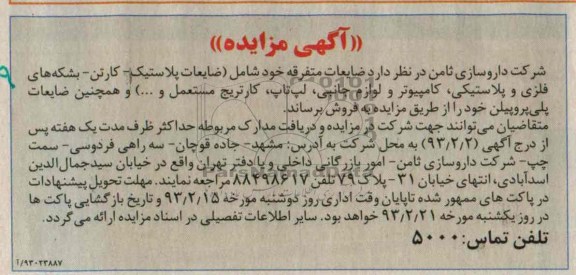 «آگهی مزایده»
شرکت داروسازی ثامن در نظر دارد ضایعات متفرقه خود شامل (ضایعات پلاستیک- کارتن- بشکه‌های
فلزی و پلاستیکی، کامپیوتر و لوازم جانبی، لپ‌تاپ، کارتریج مستعمل و ...) و همچنین ضایعات
پلی‌پروپیلن خود را از طریق مزایده به فروش برساند.
متقاضیان می‌توانند جهت شرکت در مزایده و دریافت مدارک مربوطه حداکثر ظرف مدت یک هفته پس
از درج آگهی (۹۳/۲/۲) به محل شرکت به آدرس: مشهد- جاده قوچان- سه راهی فردوسی- سمت
چپ- شرکت داروسازی ثامن- امور بازرگانی داخلی و یا دفتر تهران واقع در خیابان سیدجمال‌الدین
اسدآبادی، انتهای خیابان ۳۱ - پلاک ۷۹ تلفن ۸۸۴۹۸۶۱۷ مراجعه نمایند. مهلت تحویل پیشنهادات
در پاکت های ممهور شده تا پایان وقت اداری روز دوشنبه مورخه ۹۳/۲/۱۵ و تاریخ بازگشایی پاکت ها
در روز یکشنبه مورخه ۹۳/۲/۲۱ خواهد بود. سایر اطلاعات تفصیلی در اسناد مزایده ارائه می گردد.
تلفن تماس: ۵۰۰۰
۹۳۰۲۳۸۸۷/آ